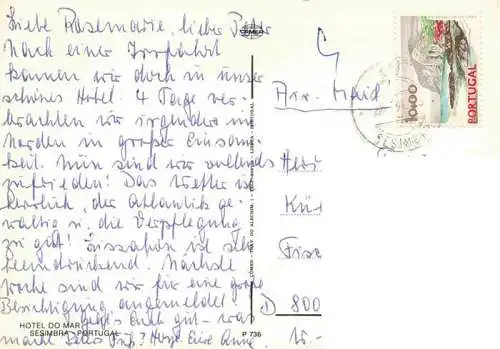 Liebe Rosemarie, lieber Peter
Nach einer Irrfahrt
kamen wir doch in unser
schönes Hotel. 4 Tage ver-
brachten wir irgendwo im
Norden in großer Einsam-
keit. Nun sind wir vollends
zufrieden! Das Wetter ist
herrlich, der Atlantik ge-
waltig u. die Verpflegung
zu gut! Lissabon ist sehr
beeindruckend. Nächste
Woche sind wir für eine große
Besichtigung angemeldet
Euch gut - was
macht Fuß? Herzl. Eure Anne
HOTEL DO MAR
SESIMBRA - PORTUGAL
P 736
Air-Mail
10$00
PORTUGAL
SESIMBRA
Herr
Kü
Fise
D 800